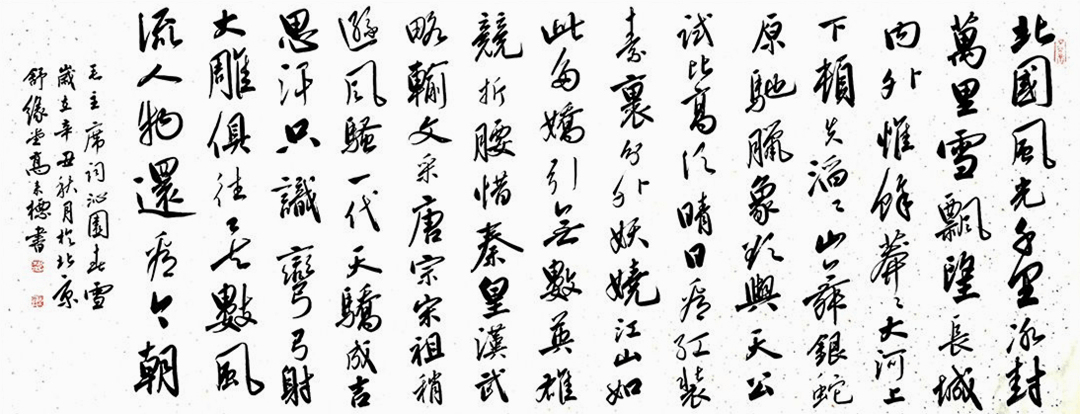 北國風光千里冰封
萬里雪飄望長城
内外惟餘莽々大河上
下頓失滔々山舞銀蛇
原馳臘象欲與天公
試比高須晴日看紅裝
素裹分外妖嬈江山如
此多嬌引無數英雄
競折腰惜秦皇漢武
略輸文采唐宗宋祖稍
遜風騷一代天驕成吉
思汗只識彎弓射
大雕俱往矣數風
流人物還看今朝
毛主席詞沁園春雪
歲在辛丑秋月於北京
舒緣堂高標書